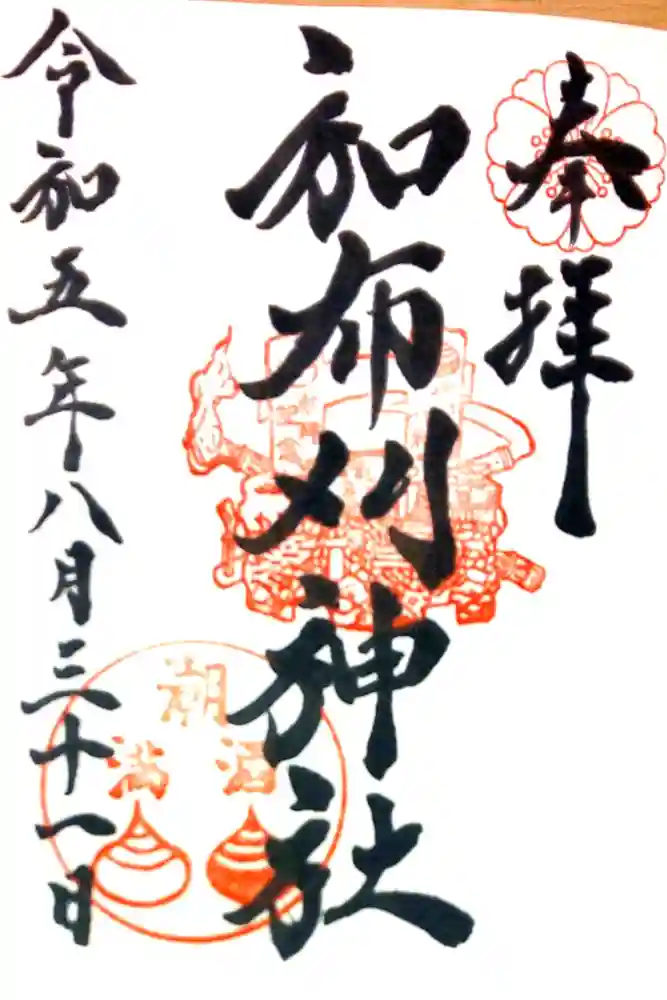 奉拝
和布刈神社
令和五年八月三十一日
潮
満